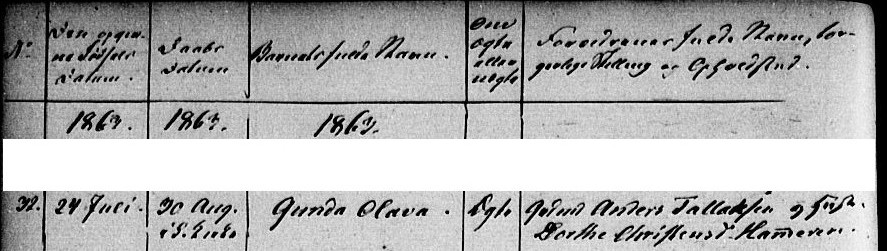 No.
Den egent-
lige Fødsels
Datum.
Daabs
Datum
Barnets fulde Navn.
Om
Ægte
eller
uægte
Forældrenes fulde Navn, bor-
gerlige Stilling og Opholdsted.
1863. 1863. 1863.
32. 24 Juli. 30 Aug. Gunda Olava. Ægte Gdmd Anders Tallaksen og Hust.
Dorthe Christensd. Hameren.